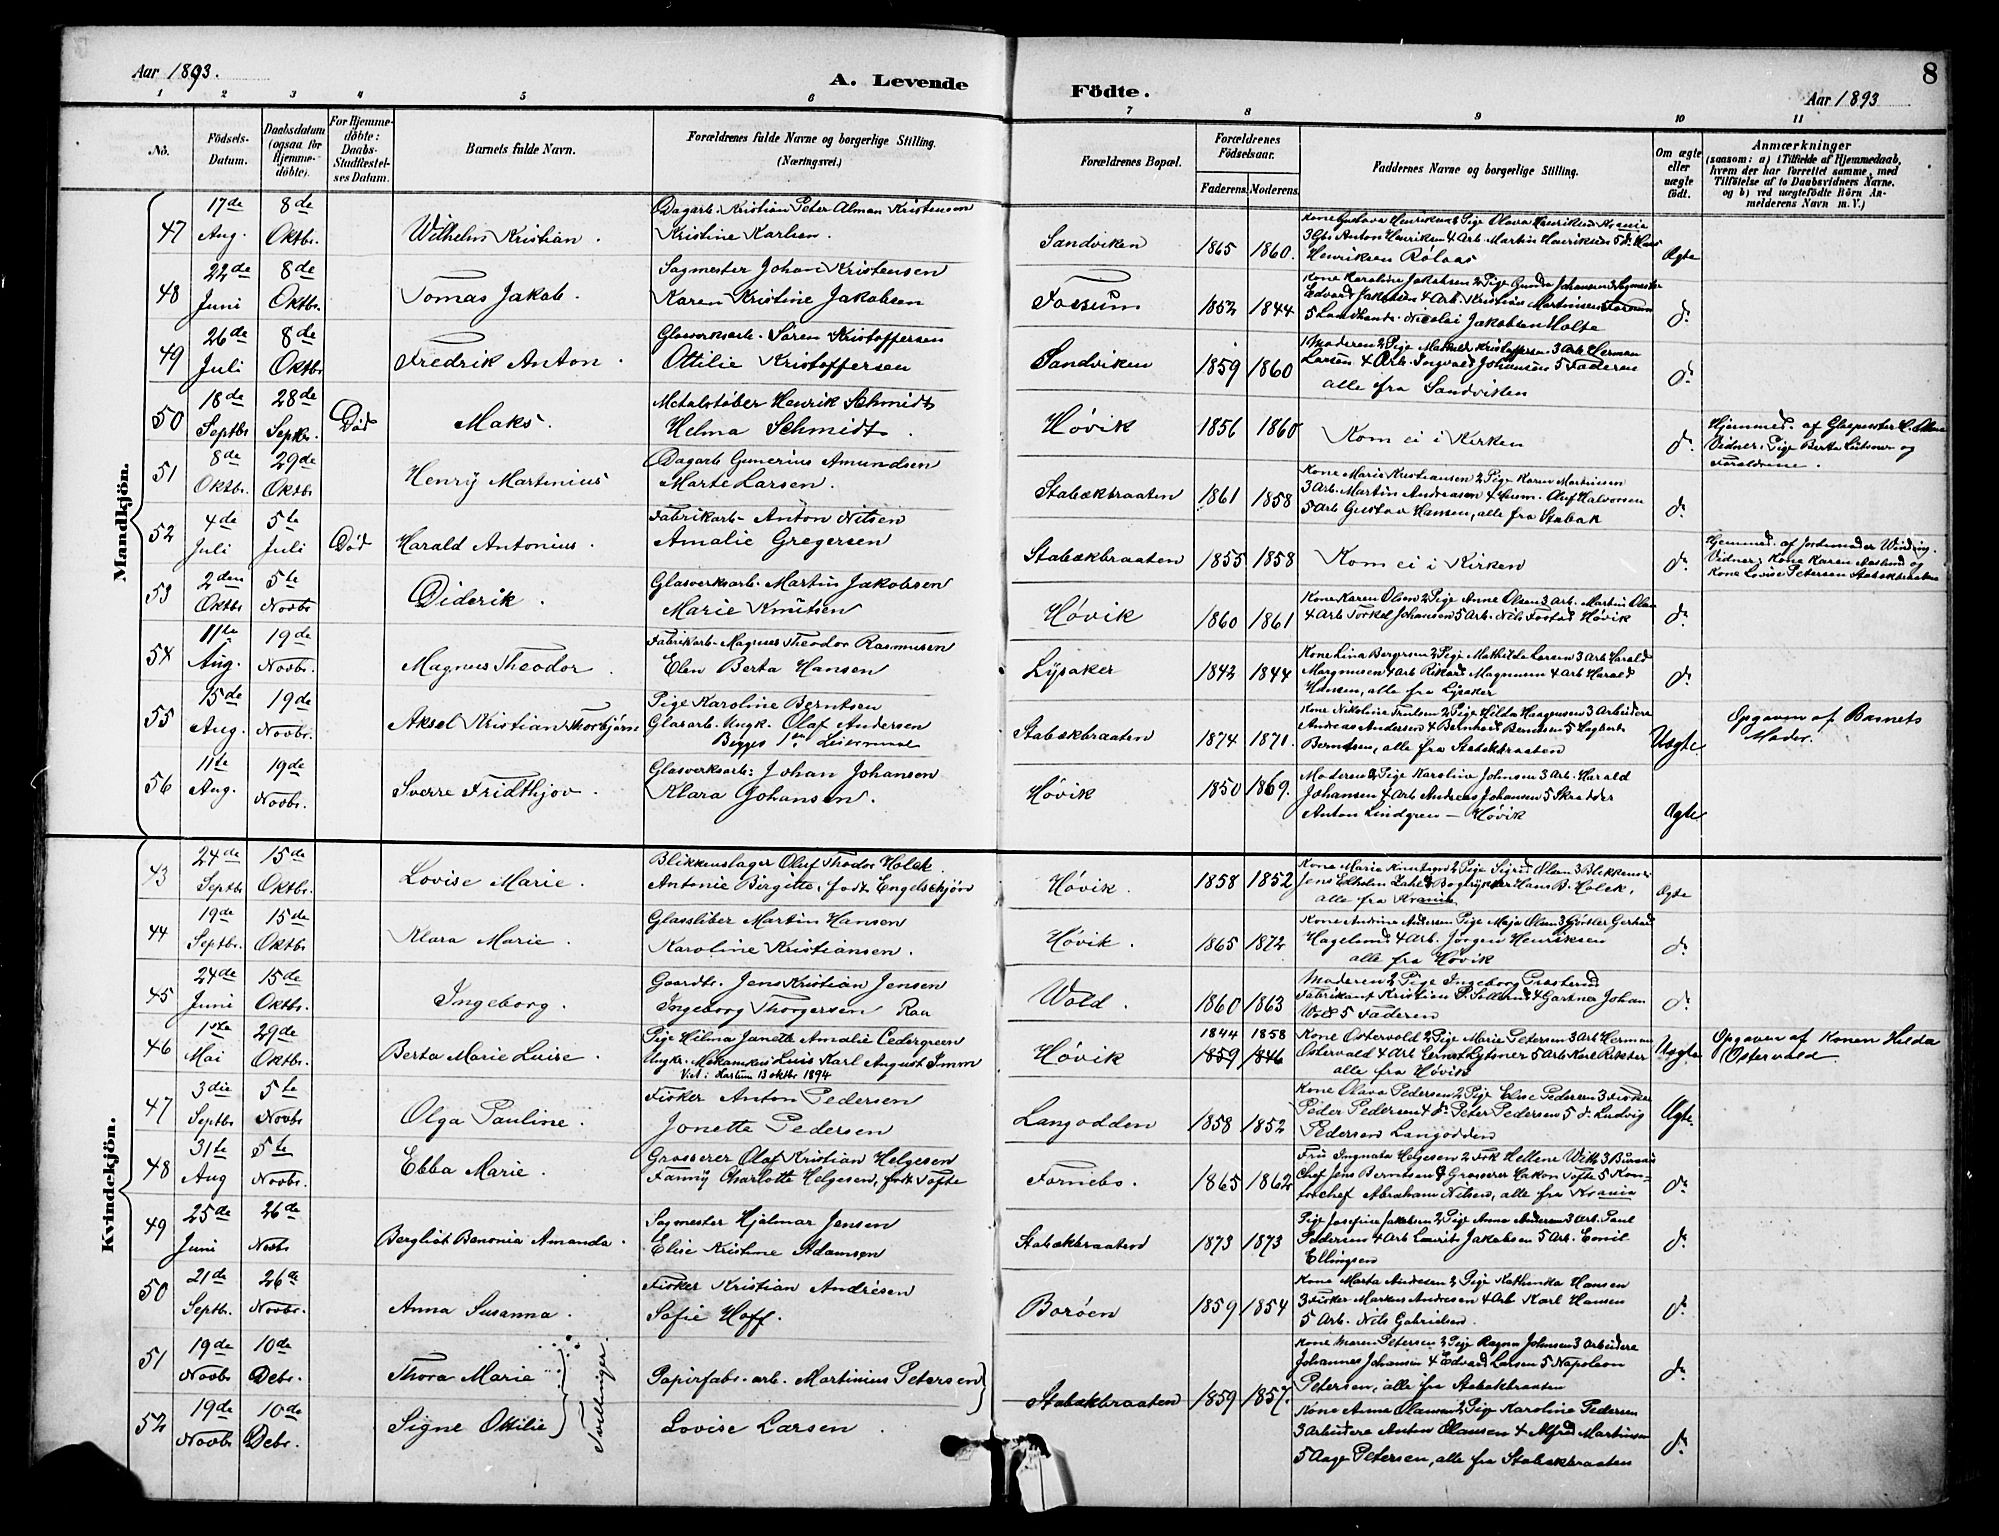 Aar 1893.
A. Levende
Födte.
Aar 1893
8
1 2 3 4 5 6 7 8 9 10 11
No.
Födsels-Datum.
Daabsdatum (ogsaa for Hjemme-döbte).
For Hjemme-döbte: Daabs-Stadfæstel-ses Datum.
Barnets fulde Navn.
Forældrenes fulde Navne og borgerlige Stilling.
(Næringsvei.)
Forældrenes Bopæl.
Forældrenes Födselsaar.
Faderens. Moderens.
Faddernes Navne og borgerlige Stilling.
Om ægte eller uægte födt.
Anmærkninger
(saasom: a) i Tilfælde af Hjemmedaab, hvem der har forrettet samme, med Tilföielse af to Daabsvidners Navne, og b) ved uægtefödte Börn An-melderens Navn m. V.)
Mandkjön.
47 17de Aug. 8de Oktbr. Wilhelm Kristian.
Dagarb. Kristian Peter Alman Kristensen
Kristine Karlsen.
Sandviken 1865 1860.
Kone Gustava Henriksen 2 Pige Olava Henriksen Krania
3 Gbr Anton Henriksen 4 Arb. Martin Henriksen 5 do Hans
Henriksen Rolaas
Ægte
48 22de Juni 8de Oktbr. Tomas Jakob.
Sagmester Johan Kristensen
Karen Kristine Jakobsen
Fossum 1852 1844
Kone Karoline Jakobsen 2 Pige Gunda Johansen 3 Sagmester
Edvard Jakobsen 4 Arb. Kristian Martinsen Fossum
5 Landhandl. Nicolai Jakobsen Holte
do
49 26de Juli 8de Oktbr Fredrik Anton.
Glasverksarb. Sören Kristoffersen
Ottilie Kristoffersen
Sandviken 1859 1860
1 Moderen 2 Pige Mathilde Kristoffersen 3 Arb. Herman
Larsen 4 Arb. Ingvald Johansen 5 Faderen
alle fra Sandviken
do
50 18de Septbr 28de Septbr. Död Maks.
Metalstøber Henrik Schmidt
Helma Schmidt.
Høvik 1856 1860
Kom ei i Kirken
do
Hjemmed. af Glaspuster
Vidner: Pige Berta og
Forældrene.
51 8de Oktbr. 29de Oktbr Henry Martinius
Dagarb Gunerius Amundsen
Marte Larsen.
Stabækbraaten 1861 1858
Kone Marie Kristiansen 2 Pige Karen Martinsen
3 Arb. Martin Andreasen 4 Husm. Oluf Halvorsen
5 Arb Gustav Hansen, alle fra Stabæk
do
52 4de Juli 5te Juli Död Harald Antonius.
Fabrikarb. Anton Nilsen
Amalie Gregersen
Stabækbraaten 1855 1858
Kom ei i Kirken
do
Hjemmed. af Jordemoder Winding.
Vidner: Kone Karen Aaslund og
Kone Lovise Petersen Stabækbraaten
53 2den Oktbr 5te Novbr Diderik.
Glasverksarb. Martin Jakobsen
Marie Knutsen
Høvik 1860 1861
Kone Karen Olsen 2 Pige Anne Olsen 3 Arb. Martin Olsen
4 Arb Torkel Johansen 5 Arb. Nils Fostad Høvik
do
54 11te Aug. 19de Novbr. Magnus Theodor.
Fabrikarb. Magnus Theodor Rasmusen
Elen Berta Hansen
Lysaker 1842 1844
Kone Lina Bergersen 2 Pige Mathilde Larsen 3 Arb Harald
Margnusen 4 Arb Rikard Magnusen 4 Arb Harald
Hansen, alle fra Lysaker
do
55 15de Aug. 19de Novbr. Aksel Kristian Thorbjørn
Pige Karoline Berntsen
Glasarb. Ungk. Olaf Andersen
Begges 1ste Leiermaal
Stabækbraaten 1874 1871.
Kone Nikoline Trulsen 2 Pige Hilda Haagensen 3 Arbeidere
Andreas Andersen 4 Bernhard Berndsen 5
Berntsen, alle fra Stabækbraaten
Uægte.
Opgaven af Barnets
Moder.
56 11te Aug. 19de Novbr. Sverre Fridthjov.
Glasverksarb: Johan Johanson
Klara Johansen.
Høvik 1850 1869.
Moderen 2 Pige Karoline Johnsen 3 Arb. Harald
Johansen 4 Arb Andreas Johansen 5 Skrædder
Anton Lindgren — Høvik
Ægte
Kvindekjön.
43 24de Septbr 15de Oktbr. Lovise Marie.
Blikkenslager Oluf Thodor Holck.
Antonie Birgitte, født Engelschjøn
Høvik. 1858 1852
Kone Marie Knutsen 2 Pige Sigrid Olsen 3 Blekkensl.
Jens Edholm Zahl 4 Bogtrykker Hans B. Holck,
alle fra Krania
Ægte
44 19de Septbr. 15de Oktbr Klara Marie.
Glassliber Martin Hansen
Karoline Kristiansen.
Høvik. 1865 1872
Kone Andrine Andersen Pige Maja Olsen 3 Gjørtler Gerhad
Hagelund 4 Arb. Jørgen Henriksen
alle fra Høvik
do
45 24de Juni 15de Oktbr. Ingeborg.
Gaardbr. Jens Kristian Jensen
Ingeborg Thorgersen Raa
Wold. 1860 1863
Moderen 2 Pige Ingeborg Prosterud
Fabrikant Kristian P. Sollerud 4 Gartner Johan
Wold 5 Faderen
do
46 1ste Mai 29de Oktbr. Berta Marie Luise.
Pige Hilma Janette Amalie Cedergreen
Ungk. Mekanikus Luis Karl August Imm
Viet i Hartum 13 oktbr 1894
Høvik 1844 1858
1859 1846
Kone Ostervold 2 Pige Marie Petersen 3 Art Herman
Ostervald 4 Arb Ernst Lytsner 5 Arb Karl Rikter
alle fra Høvik
Uægte.
Opgaven af Konen Hilda
Ostervald
47 3die Septbr 5te Novbr Olga Pauline.
Fisker Anton Pedersen
Jonette Pedersen
Langodden 1858 1852
Kone Olava Pedersen 2 Pige Else Pedersen 3 Fisker
Peder Pedersen 4 do Peter Pedersen 5 do Ludvig
Pedersen Langodden
Ægte.
48 31te Aug 5te Novbr. Ebba Marie.
Grosserer Olaf Kristian Helgesen
Fanny Charlotte Helgesen, født Tofte
Fornebo. 1865 1862
Fru Ingvata Helgesen 2 Frk Hellene With 3 Bureau
Chef Jens Berntsen 4 Grosserer Hakon Tofte 5 Kon-
torchef Abraham Nilsen, alle fra Krania
do
49 25de Juni 26de Novbr Bergliot Benonia Amanda.
Sagmester Hjalmar Jensen
Elise Kristine Adamsen
Stabækbraaten 1873 1873
Pige Josefine Jakobsen 2 Pige Anna Andersen 3 Arb. Paul
Pedersen 4 Arb Laurits Jakobsen 5 Arb. Emil
Ellingsen
do
50 21de Septbr. 26de Novbr. Anna Susanna.
Fisker Kristian Andrésen
Sofie Hoff.
Borøen 1859 1854
Kone Marta Andresen 2 Pige Kathinka Hansen
3 Fisker Markus Andresen 4 Arb Karl Hansen
5 Arb. Nils Gabrielsen.
do
51 19de Novbr 10de Debr. Thora Marie
Tvillinger.
Papirfabr. arb. Martinius Petersen
Stabækbraaten 1859 1857.
Kone Maren Petersen 2 Pige Ragna Johnsen 3 Arbeidere
Johannes Johansen 4 Edvard Larsen 5 Napoleon
Petersen, alle fra Stabækbraaten
do
52 19de Novbr 10de Debr. Signe Ottilie
Lovise Larsen.
Kone Anne Olausen 2 Pige Karoline Pedersen
3 Arbeidere Anton Olausen 4 Alfred Martinsen
5 Aage Petersen, alle fra Stabækbraaten
do